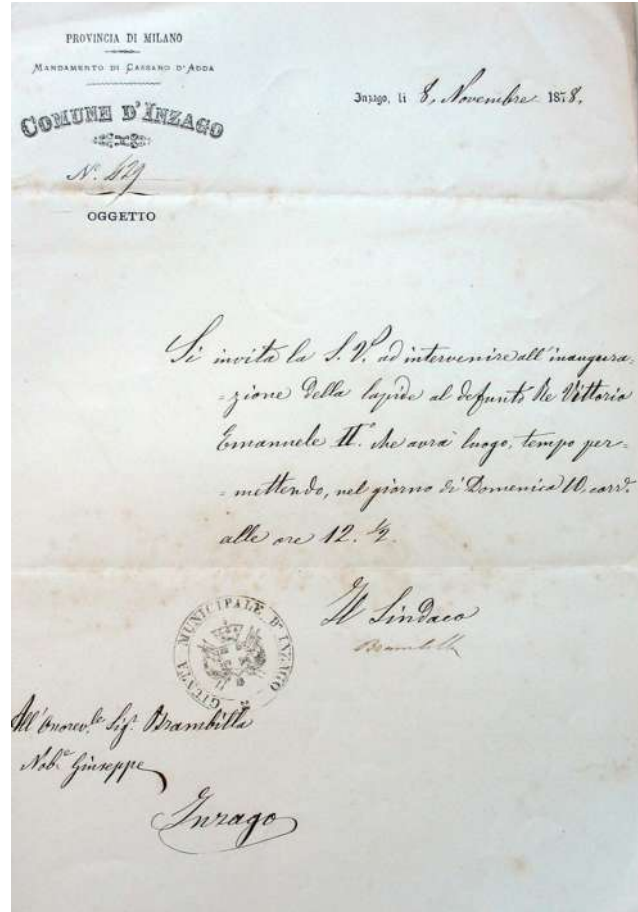 PROVINCIA DI MILANO
MANDAMENTO DI CASSANO D'ADDA
COMUNE D'INZAGO
N.° 429
OGGETTO
Inzago, li 8, Novembre 1878,
Si invita la S. V. ad intervenire all'inaugura=
=zione della lapide al defunto Re Vittorio
Emanuele II.° che avrà luogo, tempo per=
=mettendo, nel giorno di Domenica 10, corr.e
alle ore 12. 1/2.
Il Sindaco
Brambilla
GIUNTA MUNICIPALE D'INZAGO
All'Onorev.le Sig.r Brambilla
Nob.e Giuseppe
Inzago